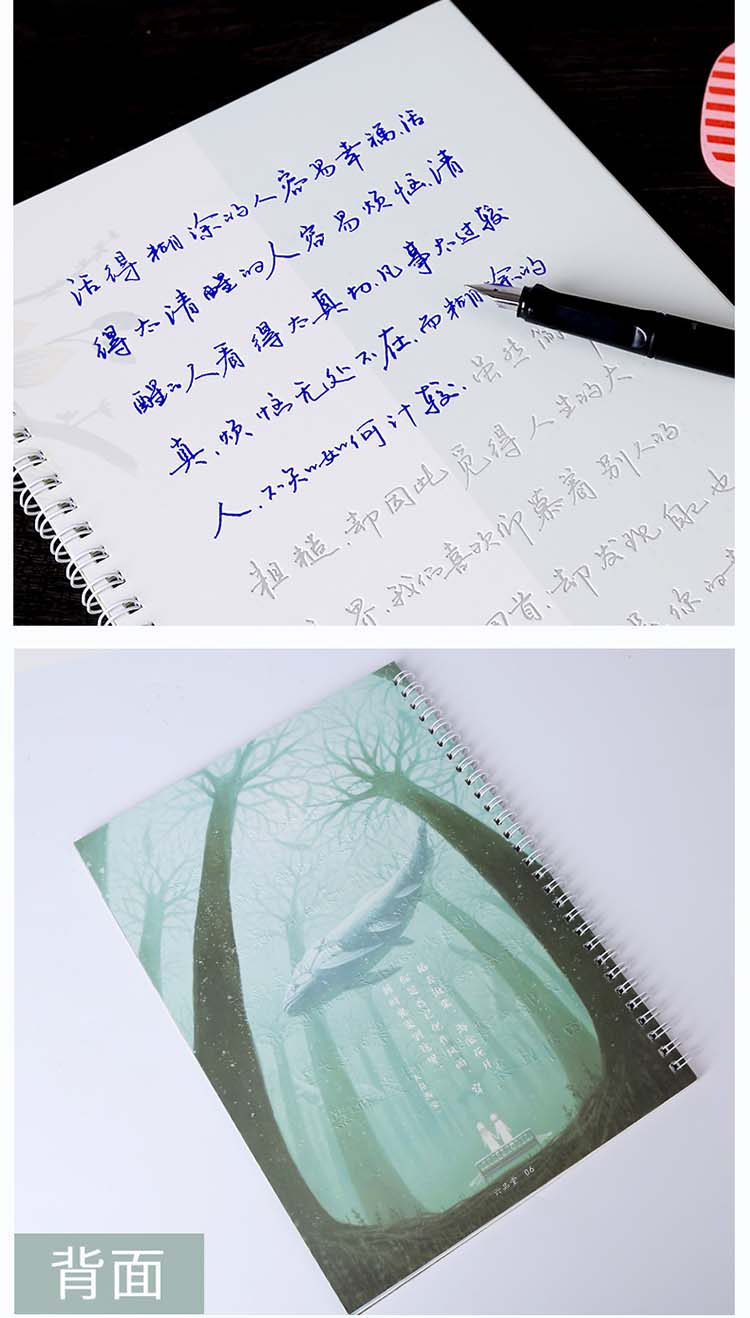 活得糊涂的人容易幸福,活
得太清醒的人容易烦恼.清
醒的人看得太真切.凡事太过较
真,烦恼无处不在.而糊涂的
人.不知如何计较.虽然简
粗糙.却因此觅得人生的大
界.我们喜欢仰慕着别人的
回首.却发现自己也
你的
六品堂 06
背面